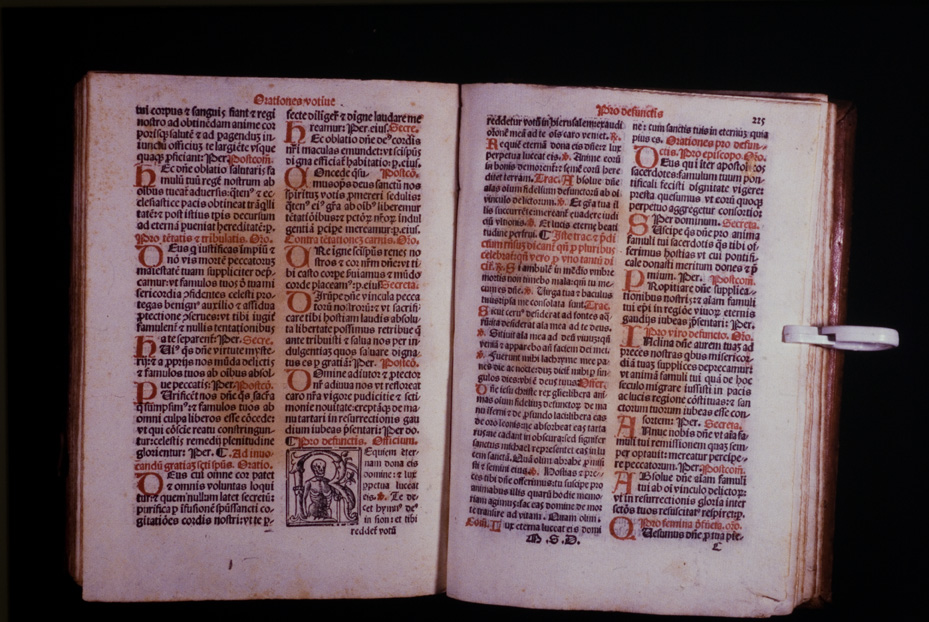 Orationes votiue
tui corpus & sanguis fiant & regi
nostro ad obtinendam anime cor
porisqz salutē & ad
officium & largiēte vsqz
proficiant: Per. Postcom.
Hec dn̄e oblatio salutaris fa
mulū tuū regē nostrum ab
oibus tueat aduersis: & ec
clesiastice pacis obtineat trāqlli
tatē: & post istius tpis decursum
ad eternā pueniat hereditatē: p.
Pro tētatis & tribulatis. Oro.
Deus q iustificas impiū &
nō vis mortē peccatorum
maiestatē tuam suppliciter dep̄
camur: vt famulos tuos d̄ tua mi
sericordia p̄fidentes celesti pro
tegas benign9 auxilio & assidua
p̄tectione p̄serues: vt tibi iugit̄
famulent̄ & nullis tentationibus
a te separent̄: Per. Secre.
Hui9 qs dn̄e virtute myste
rij: & a p̄prijs nos mūda delictj
& famulos tuos ab oibus absol
ue peccatis: Per. Postcō.
Purificēt nos dn̄e qs sacra
& famulos tuos ab
omni culpa liberos esse cōcede:
vt qui cōscie reatu constringun
tur: celestis remedij plenitudine
glorientur: Per. Ad inuo-
candū gratiaz scti spūs. Oratio.
Deus cui omne cor patet
& omnis voluntas loqui
tur: & quem nullum latet secretū:
purifica p̄ ifusionē sp̄ussancti co
gitatiōes cordis nostri: vt te p̄-
fecte diliger̄ & digne laudare me
reamur: Per. eius. Secre.
Hec oblatio dn̄e cordis
nr̄i maculas emundet: vt scti sp̄us
digna efficiat̄ habitatio: p. eius.
Concede qs
misops deus sanctū nos
spiritū votis p̄mereri sedulis:
gr̄a ab oibus liberemur
tētatiōibus: & pctōꝝ nr̄oꝝ indul
gentiā pcipe mereamur: p. eius.
Contra tētationes carnis. Oro.
Ure igne sctisp̄us renes no
stros & cor nr̄m dn̄e: vt ti
bi casto corpe seruiamus & mūdo
corde placeam9: p. eius Secreta.
Disrūpe dn̄e vincula pecca
torū nostroꝝ: & vt sacrifi
care tibi hostiam laudis absolu
ta libertate possimus retribue q
ante tribuisti & salua nos per in
dulgentiaz quos saluare digna-
tus es p gratiā: Per. Postcō.
Domine adiutor & p̄tector
nr̄ adiuua nos: vt refloreat
caro nr̄a vigore pudicitie & scti
monie nouitate: ereptāqz de ma
nu tartari in resurrectionis gau
dium iubeas p̄sentari: Per do.
Pro defunctis. Officium.
Requiem eter
nam dona eis
domine: & lux
ppetua luceat
eis. Te de-
cet hymn9 de9
in sion: & tibi
reddet̄ votū
Pro defunctis
215
reddetur votū in hierusalem: exaudi
orationē meā ad te ois caro veniet. R.
Requiē eternā dona eis dn̄e: & lux
perpetua luceat eis. Anime eorū
in bonis demorent̄: & semē eorū here
ditet terram. Trac. Absolue dn̄e
aīas oīum fidelium defunctorū ab oi
vinculo delictorum. Et gr̄a tua il
lis succurrēte mereant̄ euadere iudi
ciū Et lucis eterne beati
tudine perfrui. Iste trac. & p̄dictum
dicant̄ qn̄ p pluribus
celebrat̄ qn̄ vero p vno tantū di
cit̄. R. Si ambulē in medio vmbre
mortis non timebo mala: qm̄ tu me-
cum es dn̄e. Virga tua & baculus
tuus ipsa me consolata sunt. Trac.
Sicut ceru9 desiderat ad fontes aqꝝ
ita desiderat aīa mea ad te deus.
Sitiuit aīa mea ad deū viuū: qn̄
veniā & apparebo an̄ faciem dei mei.
Fuerunt mihi lachryme mee pa-
nes die ac nocte: dum dicit̄ mihi p sin
gulos dies: vbi ē deus tuus. Offer.
Dn̄e iesu christe rex glorie libera aīas
oīum fidelium defunctoꝝ de ma
nu inferni & de p̄fundo lac9: libera eas
de ore leonis: ne absorbeat eas tarta
rus: ne cadant in obscura: sed signifer
sanctus michael repn̄tet eas in lu
cem sanctā. Quā olim abrahe p̄misi
sti & semini eius. Hostias & pre-
ces tibi dn̄e offerimus: tu suscipe pro
animabus illis quarū hodie memo
riam agimus: fac eas domine de mor
te transire ad vitam. Quam olim.
Com. Lux eterna luceat eis domi
M .S.D.
ne: cum sanctis tuis in eternū: quia
pius es. Orationes pro defun-
ctis. Pro episcopo. Oro.
Deus qui iter apostolicos
sacerdotes: famulum tuum pon-
tificali fecisti dignitate vigere:
presta quesumus vt eorū quoqz
perpetuo aggregetur consortio:
Per dominum. Secreta.
Suscipe qs dn̄e pro anima
famuli tui sacerdotis qs tibi of-
ferimus hostias: vt cui pontifi-
cale donasti meritum dones &
p̄mium. Per. Postcom.
Propitiare dn̄e supplica-
tionibus nostris: & aīam famuli
tui ep̄i in regiōe viuoꝝ eternis
gaudijs iubeas p̄sentari: Per.
Pro viro defuncto. Oro.
Inclina dn̄e aurem tuaz ad
preces nostras qbus misericor-
diā tuaz supplices deprecamur:
vt animā famuli tui quā de hoc
seculo migrare iussisti: in pacis
ac lucis regione cōstituas: & san
ctorum tuorum iubeas esse con-
sortem: Per. Secreta.
Annue nobis dn̄e vt aīa fa-
muli tui remissionem quaz sem-
per optauit: mereatur percipe
peccatorum: Per. Postcom.
Absolue dn̄e aīam famuli
tui ab oi vinculo delictoꝝ:
vt in resurrectionis gloria inter
sctōs tuos resuscitat̄ respiret: p.
Pro femina d̄fūcta. oro.
Quesumus dn̄e p tua pie-
C